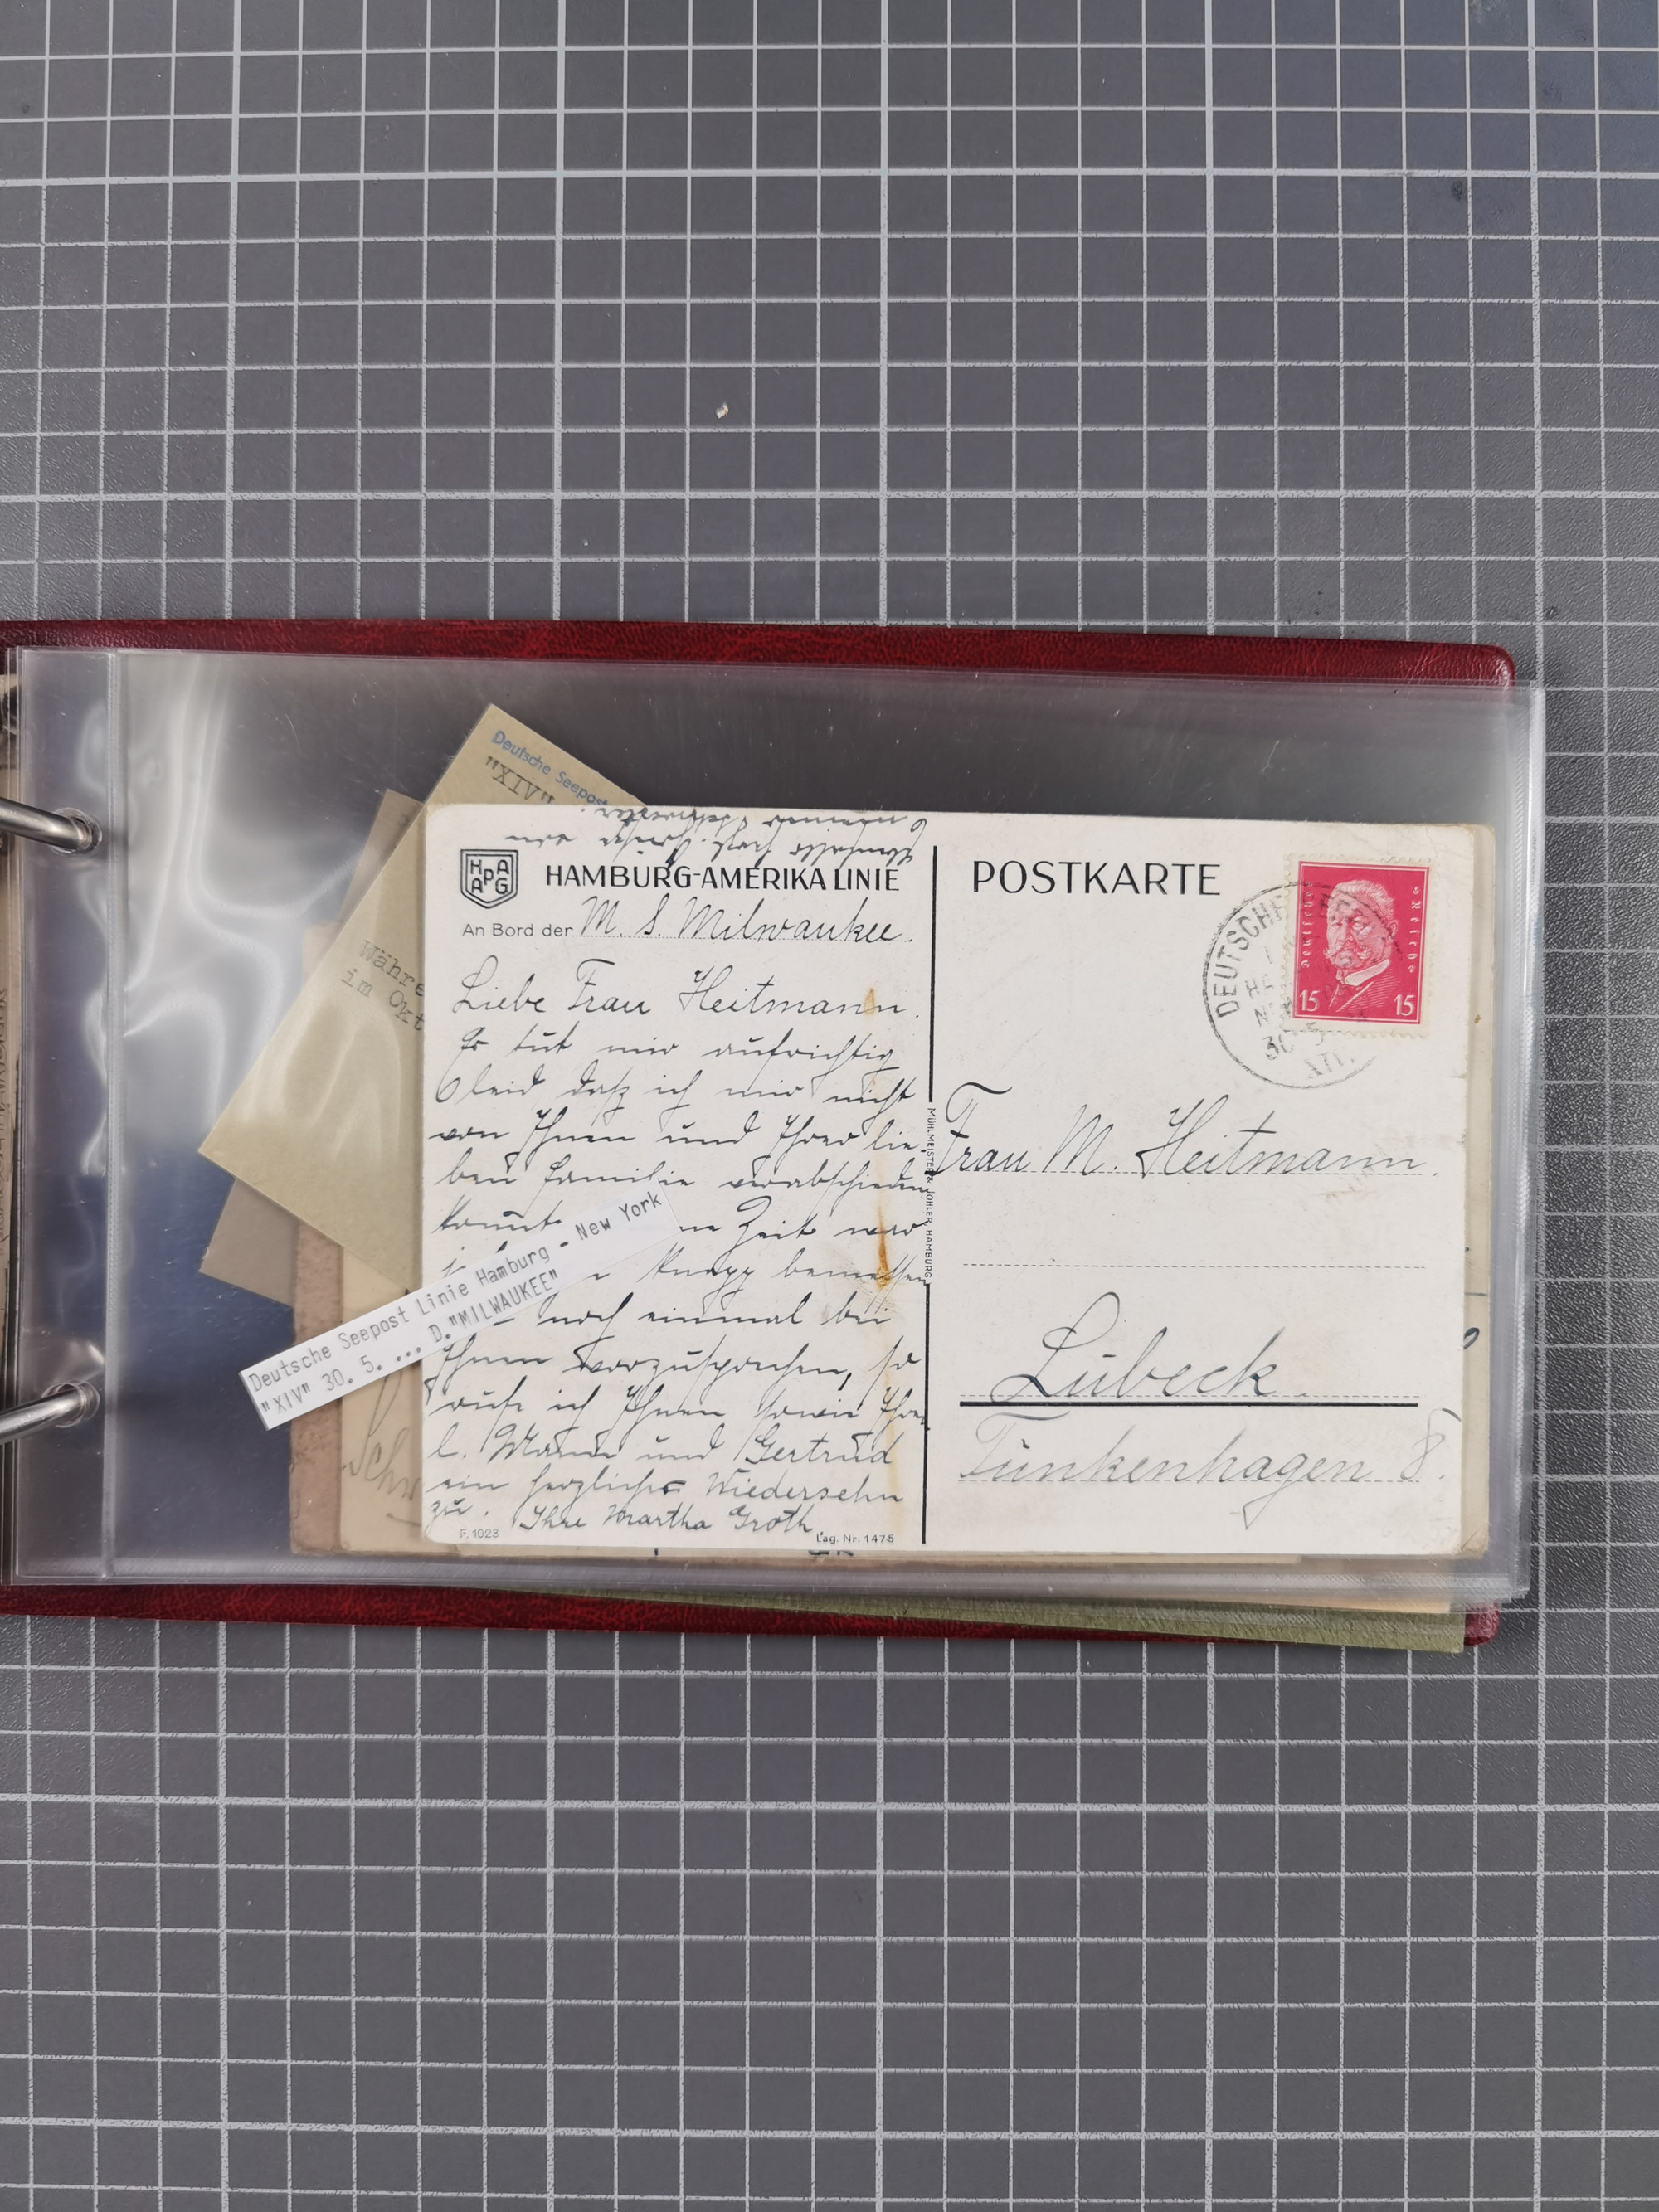 Deutsche Seepost
"XIV"
Währe
im Okt
meiner Schwester
Ebenfalls hrzl. Grüße von
HAPAG
HAMBURG-AMERIKA LINIE
An Bord der M. S. Milwaukee.
Liebe Frau Heitmann.
Es tut mir aufrichtig
leid daß ich mir nicht
von Ihnen und Ihrer lie-
ben Familie verabschieden
konnte Zeit war
knapp bemessen
noch einmal bei
Ihnen vorzusprechen, so
rufe ich Ihnen sowie Ihrem
l. Mann und Gertrud
ein herzliches Wiedersehn
zu. Ihre Martha Groth.
F. 1023
Lag. Nr. 1475
Deutsche Seepost Linie Hamburg - New York
"XIV" 30. 5. ... D."MILWAUKEE"
MÜHLMEISTER & JOHLER, HAMBURG
POSTKARTE
Deutsches Reich
15 15
DEUTSCHE
30 5
XIV.
Frau M. Heitmann.
Lübeck.
Tünkenhagen 8.